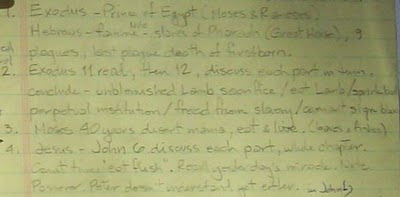 1. Exodus - Prince of Egypt (Moses & Rameses).
Hebrews - famine - slaves of Pharaoh (Great House), 9
plagues, last plague death of firstborn.
2. Exodus 11 read, then 12, discuss each part in turn.
conclude - unblemished Lamb sacrifice / eat Lamb /
perpetual institution / freed from slavery / sign blood
3. Moses 40 years desert manna, eat & live.
4. Jesus - John 6 discuss each part, whole chapter.
"eat flesh". Recall yesterday's miracle. Note
Passover. Peter doesn't understand yet either. in John 6